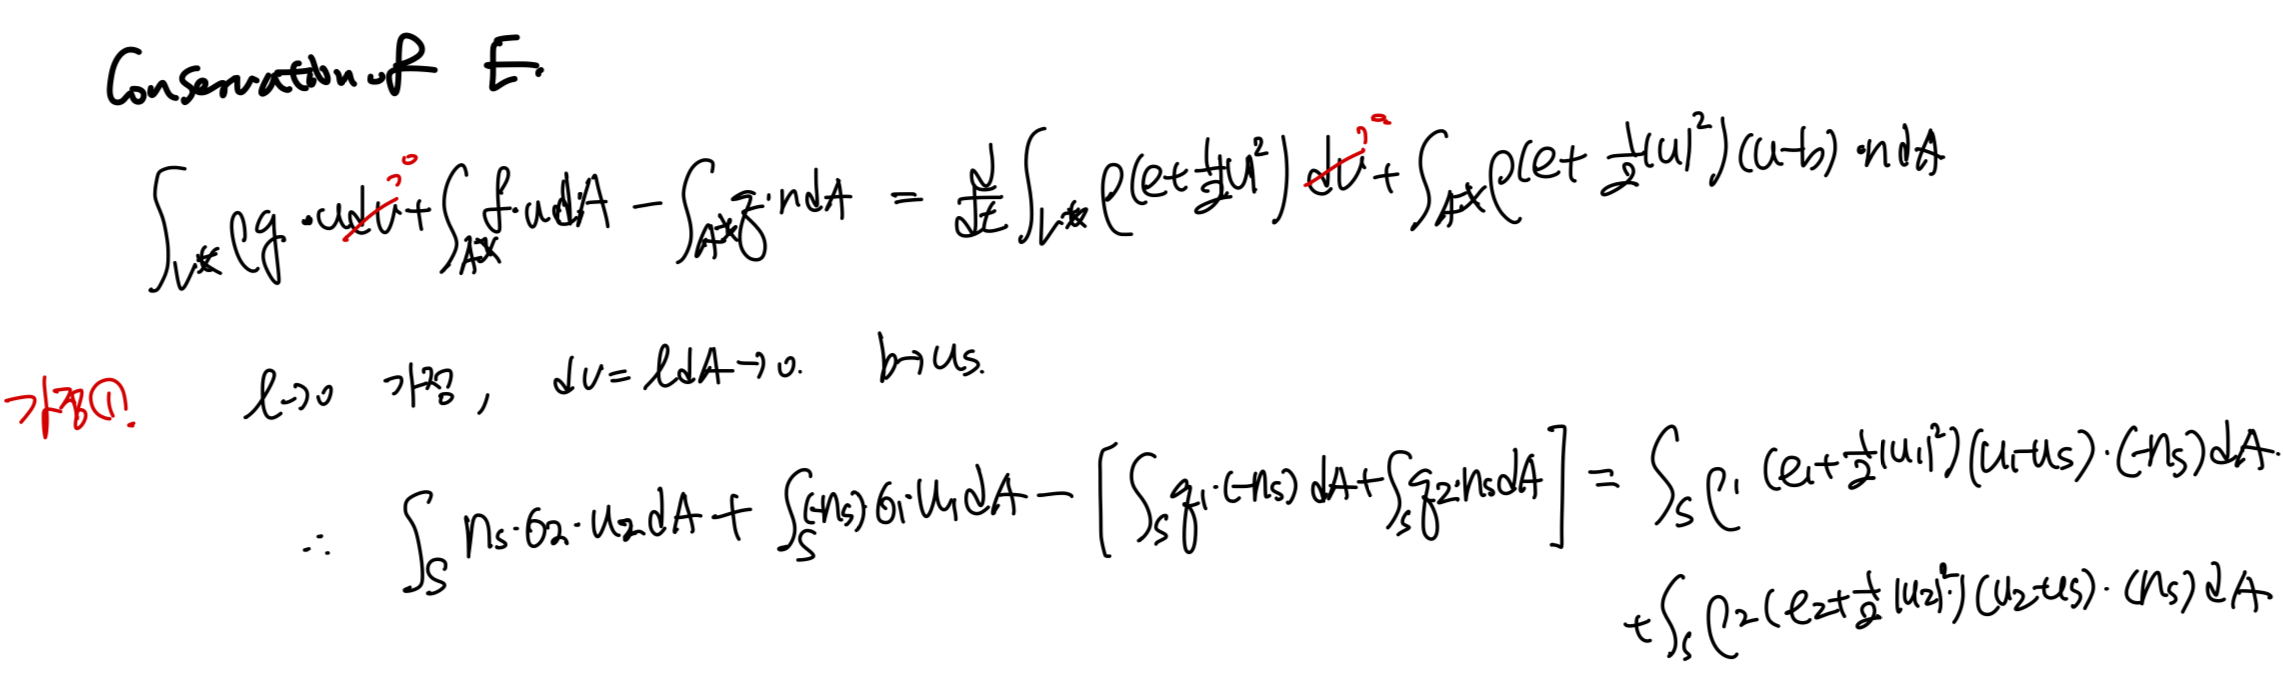 Conservation of E.
∫_{V*} ρg·u dV→0 + ∫_{A*} f·u dA − ∫_{A*} q·n dA = d/dt ∫_{V*} ρ(e+½|u|²) dV→0 + ∫_{A*} ρ(e+½|u|²)(u−b)·n dA
가정①. l→0 가정, dV = l dA→0. b→us.
∴ ∫_S ns·σ2·u2 dA + ∫_S (−ns)σ1·u1 dA − [∫_S q1·(−ns) dA + ∫_S q2·ns dA] = ∫_S ρ1(e1+½|u1|²)(u1−us)·(−ns) dA.
+∫_S ρ2(e2+½|u2|²)(u2−us)·(ns) dA